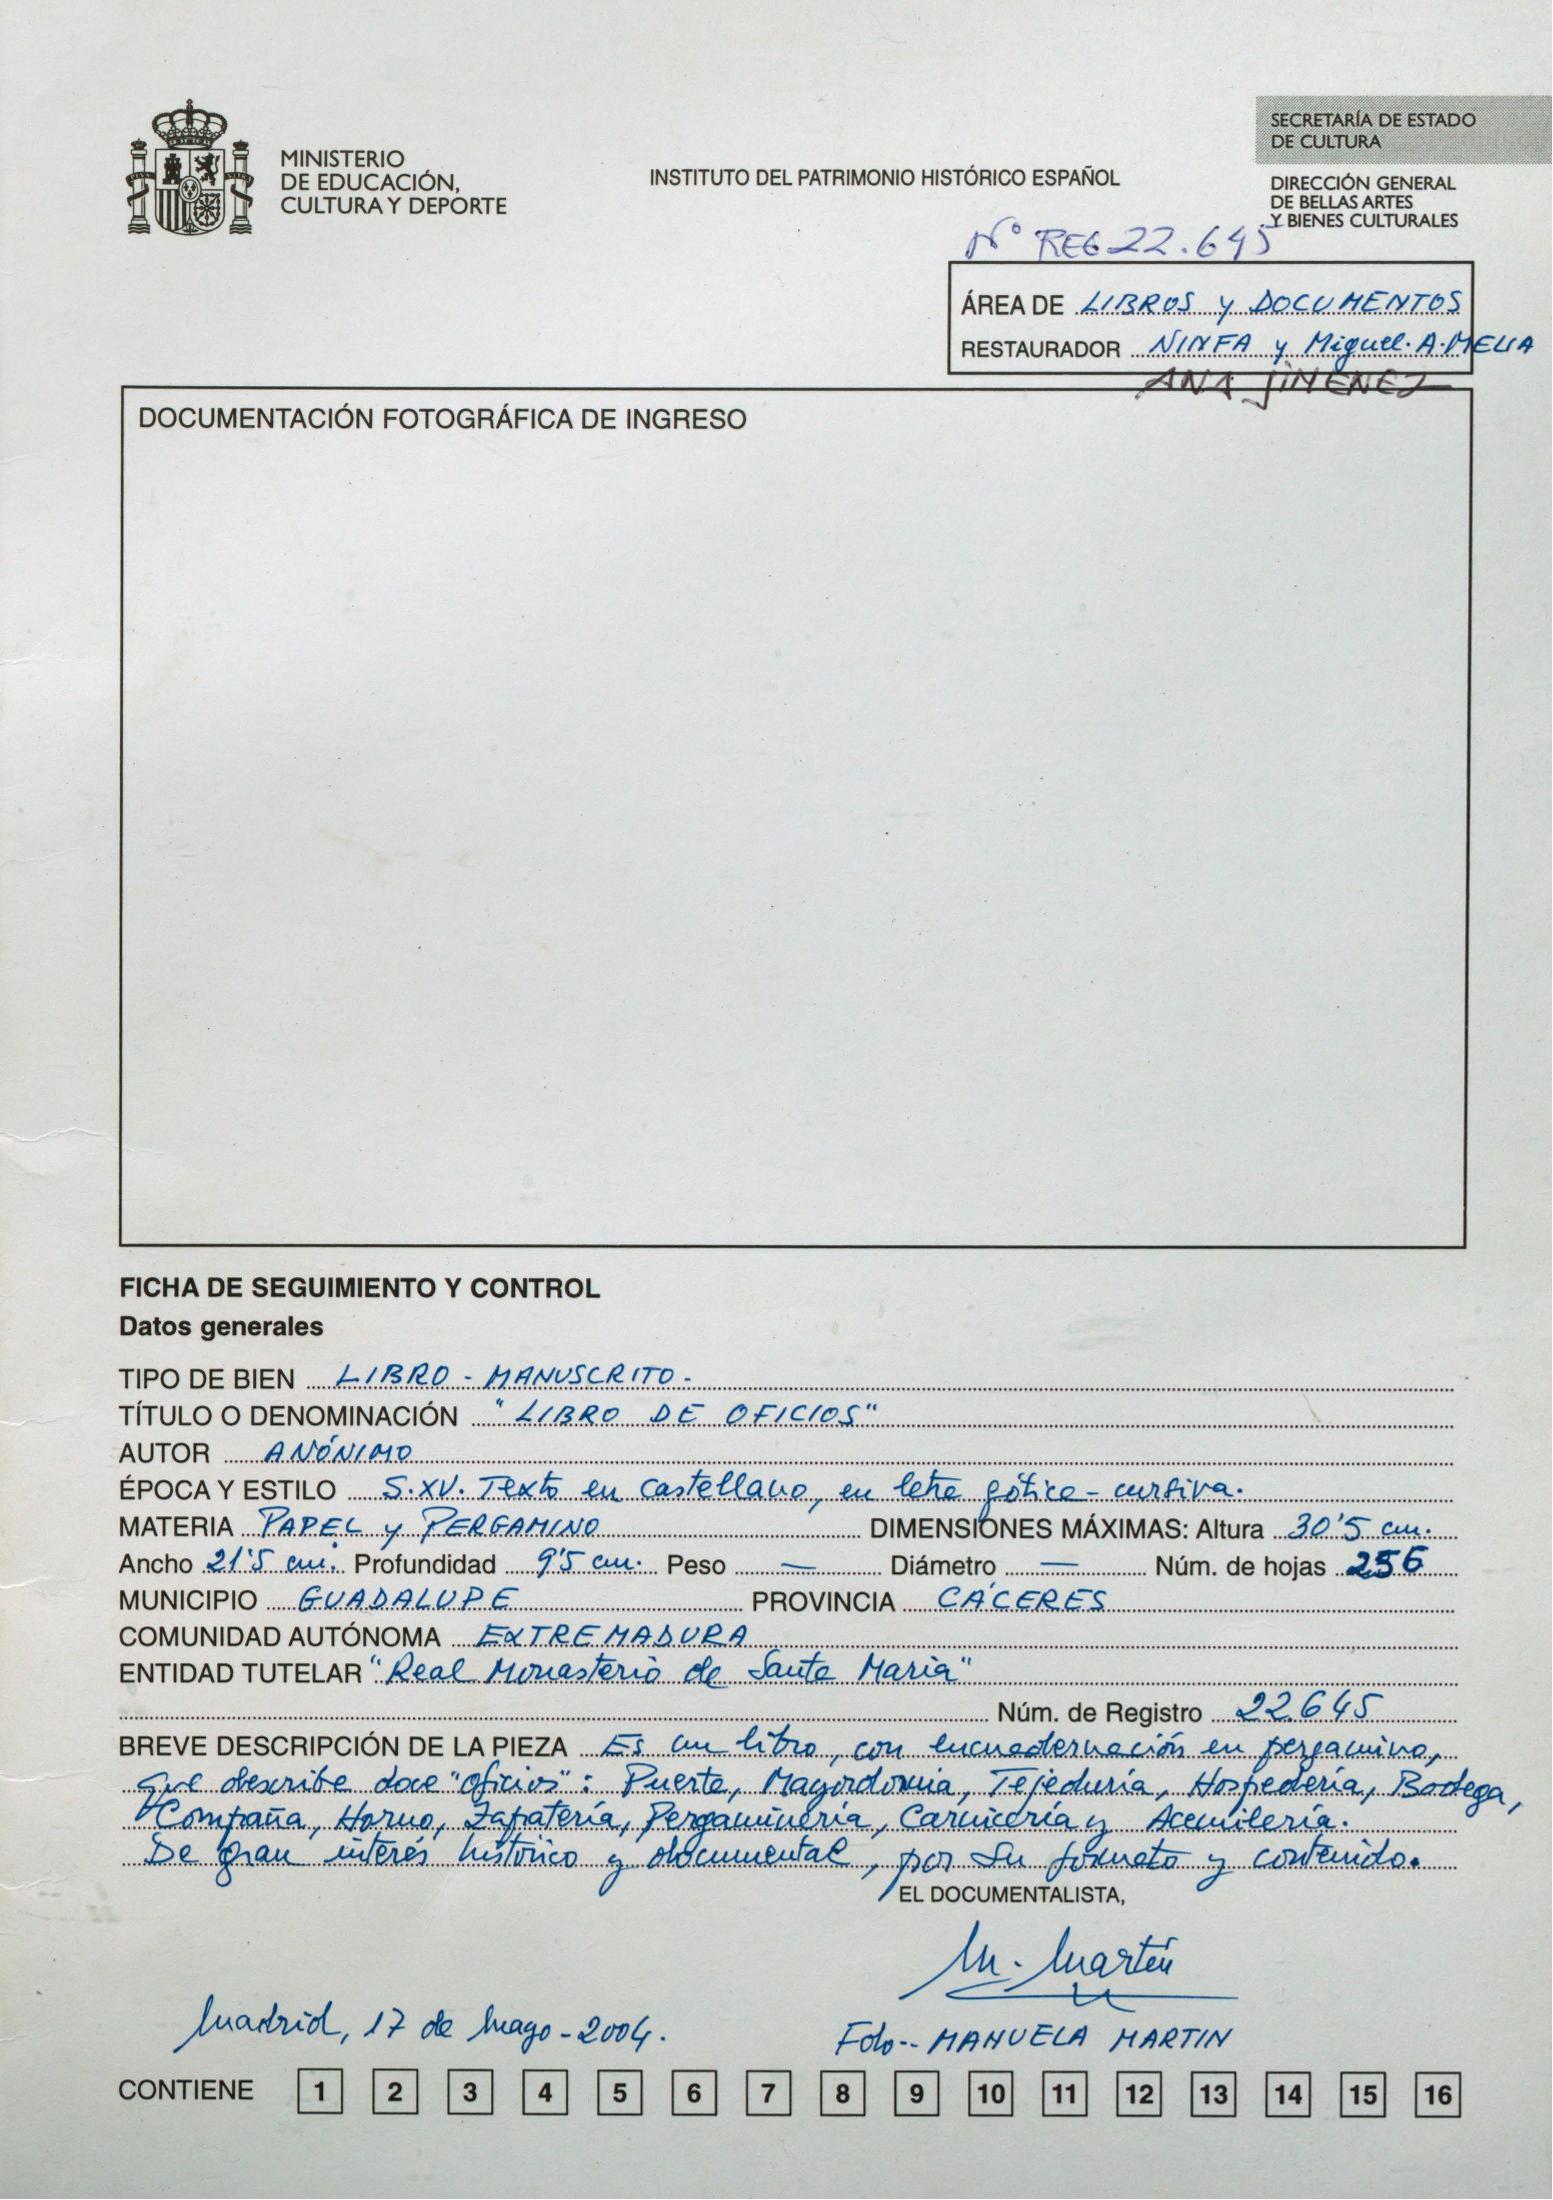 MINISTERIO
DE EDUCACIÓN,
CULTURA Y DEPORTE
INSTITUTO DEL PATRIMONIO HISTÓRICO ESPAÑOL
SECRETARÍA DE ESTADO
DE CULTURA
DIRECCIÓN GENERAL
DE BELLAS ARTES
Y BIENES CULTURALES
Nº REG 22.645
ÁREA DE LIBROS y DOCUMENTOS
RESTAURADOR NINFA y Miguel. A. MELIA
ANA JIMENEZ
DOCUMENTACIÓN FOTOGRÁFICA DE INGRESO
FICHA DE SEGUIMIENTO Y CONTROL
Datos generales
TIPO DE BIEN LIBRO - MANUSCRITO.
TÍTULO O DENOMINACIÓN "LIBRO DE OFICIOS"
AUTOR ANÓNIMO
ÉPOCA Y ESTILO S.XV. Texto en castellano, en letra gótica-cursiva.
MATERIA PAPEL y PERGAMINO DIMENSIONES MÁXIMAS: Altura 30'5 cm.
Ancho 21'5 cm. Profundidad 9'5 cm. Peso — Diámetro — Núm. de hojas 256
MUNICIPIO GUADALUPE PROVINCIA CÁCERES
COMUNIDAD AUTÓNOMA EXTREMADURA
ENTIDAD TUTELAR "Real Monasterio de Santa María"
Núm. de Registro 22.645
BREVE DESCRIPCIÓN DE LA PIEZA Es un libro, con encuadernación en pergamino,
que describe doce "oficios": Puerta, Mayordomía, Tejeduría, Hospedería, Bodega,
Compaña, Horno, Zapatería, Pergaminería, Carnicería y Acemilería.
De gran interés histórico y documental, por su formato y contenido.
EL DOCUMENTALISTA,
M. Martín
Madrid, 17 de Mayo - 2004.
Fdo.- MANUELA MARTIN
CONTIENE 1 2 3 4 5 6 7 8 9 10 11 12 13 14 15 16